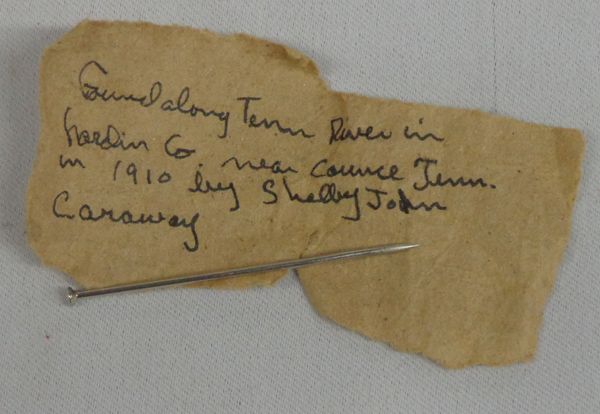 Found along Tenn River in
Hardin Co. near Counce Tenn.
in 1910 by Shelby John
Caraway